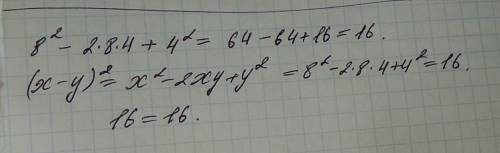 8² - 2·8·4 + 4² = 64 - 64 + 16 = 16.
(x-y)² = x² - 2xy + y² = 8² - 2·8·4 + 4² = 16.
16 = 16.